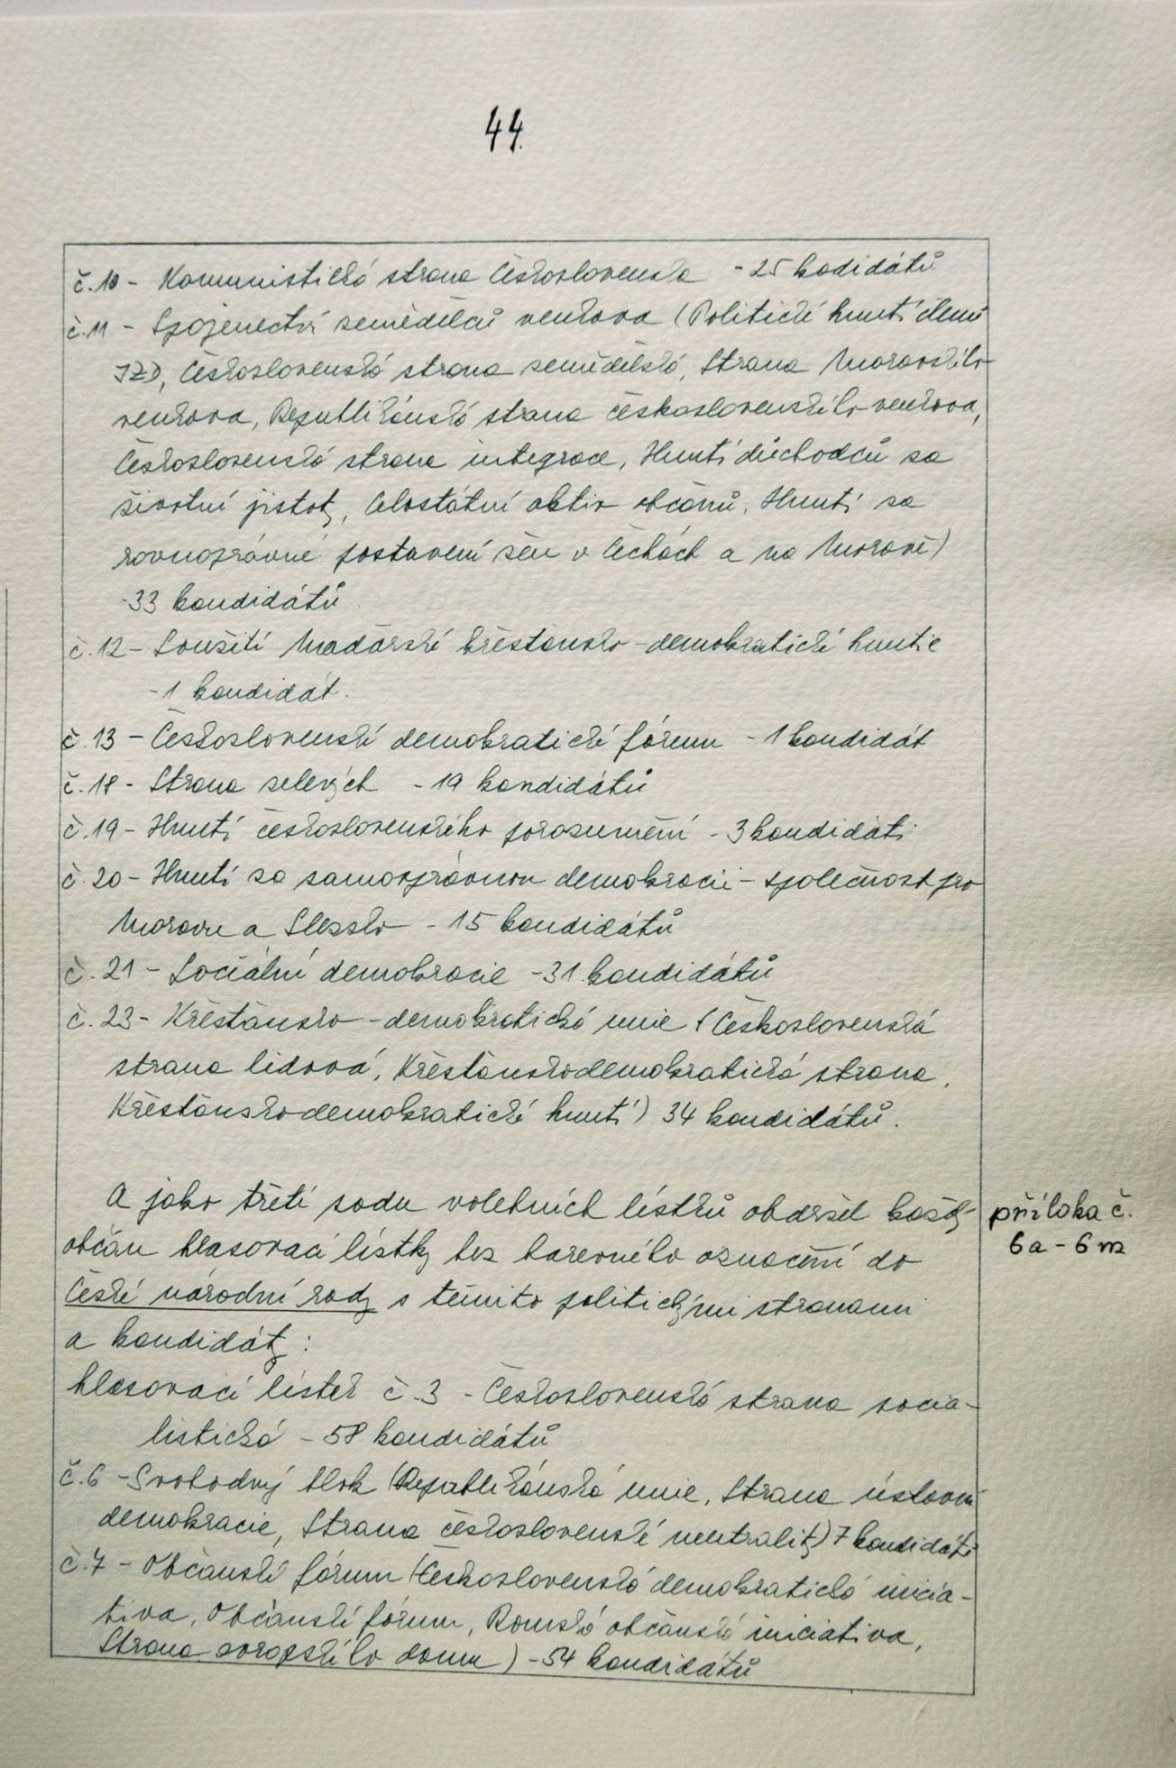 44.
č.10 - Komunistická strana Československa - 25 kadidátů
č.11 - Spojenectví zemědělců venkova (Politické hnutí členů
JZD, Československá strana zemědělská, Strana moravského
venkova, Republikánská strana československého venkova,
Československá strana integrace, Hnutí důchodců za
životní jistoty, Celostátní aktiv občanů, Hnutí za
rovnoprávné postavení žen v Čechách a na Moravě)
-33 kandidátů
č.12 - Soužití Maďarské křesťansko-demokratické hnutie
-1 kandidát.
č.13 - Československé demokratické fórum - 1 kandidát
č.18 - Strana zelených - 19 kandidátů
č.19 - Hnutí československého porozumění - 3 kandidáti
č.20 - Hnutí za samosprávnou demokracii - společnost pro
Moravu a Slezsko - 15 kandidátů
č.21 - Sociální demokracie - 31 kandidátů
č.23 - Křesťansko-demokratická unie (Československá
strana lidová, Křesťanskodemokratická strana,
Křesťanskodemokratické hnutí) 34 kandidátů.
A jako třetí sadu volebních lístků obdržel každý
občan hlasovací lístky bez barevného označení do
České národní rady s těmito politickými stranami
a kandidáty:
příloha č.
6a - 6m
hlasovací lístek č.3 - Československá strana socia-
listická - 58 kandidátů
č.6 - Svobodný blok (Republikánská unie, Strana ústavní
demokracie, Strana československé neutrality) 7 kandidátů
č.7 - Občanské fórum (Československá demokratická inicia-
tiva, Občanské fórum, Romská občanská iniciativa,
Strana evropského domu) - 54 kandidátů